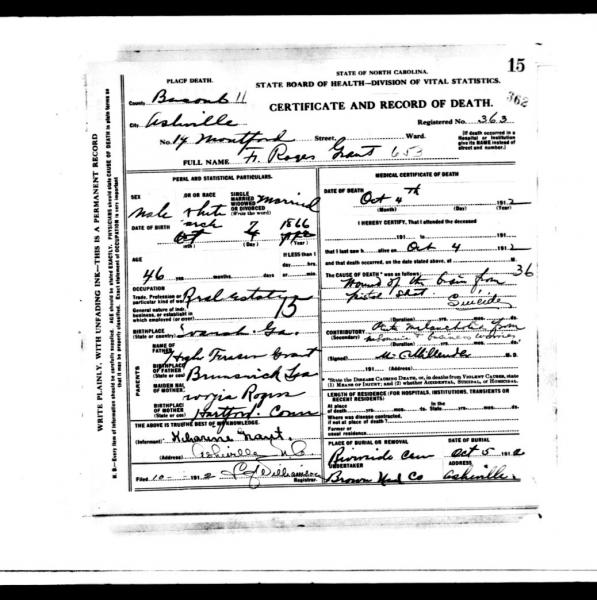 15
STATE OF NORTH CAROLINA.
PLACE DEATH.
STATE BOARD OF HEALTH—DIVISION OF VITAL STATISTICS.
County
CERTIFICATE AND RECORD OF DEATH.
362
City Asheville
Registered No. 363
No. 14 Montford Street, Ward.
(If death occurred in a Hospital or Institution give its NAME instead of street and number.)
FULL NAME Fr. Roges Grant 653
PERAL AND STATISTICAL PARTICULARS.
SEX Male
OR OR RACE white
SINGLE MARRIED WIDOWED OR DIVORCED (Wrote the word) Married
DATE OF BIRTH Oct 4 1866
(Day) (Year)
AGE
If LESS than 1 day,
46 yrs. months. days. or min.
OCCUPATION
Trade, Profession or particular kind of
Real estate
General nature of industry, business, or establishment in which employed (or
13
BIRTHPLACE (State or country) Ga.
PARENTS
NAME OF FATHER Hugh Fraser Grant
BIRTHPLACE OF FATHER (State or cou Brunswick Ga
MAIDEN NAME OF MOTHER Rogers
BIRTHPLACE OF MOTHER (State or cou Hartford Conn
THE ABOVE IS TRUE THE BEST OF MY KNOWLEDGE.
(Informant) Grant.
(Address) Asheville N.C.
Filed 10 191 2 Williamson
Registrar.
MEDICAL CERTIFICATE OF DEATH
DATE OF DEATH Oct 4th 191 2
(Month) (Day) (Year)
I HEREBY CERTIFY, That I attended the deceased
that I last saw h alive on Oct 4 191 2
and that death occurred, on the date stated above, at
The CAUSE OF DEATH* was as follows:
36
Wound of the brain from
pistol shot
Suicide
(Duration) yrs. mos. ds.
CONTRIBUTORY (Secondary)
(Duration) yrs. mos. ds.
(Signed) M. D.
191 (Address)
*State the DISEASE CAUSING DEATH, or, in deaths from VIOLENT CAUSES, state (1) MEANS OF INJURY; and (2) whether ACCIDENTAL, SUICIDAL, or HOMICIDAL.
LENGTH OF RESIDENCE (FOR HOSPITALS, INSTITUTIONS, TRANSIENTS OR RECENT RESIDENTS:
At place of death yrs. mos. ds. In the State yrs. mos. ds.
Where was disease contracted, if not at place of death?
Former or usual residence.
PLACE OF BURIAL OR REMOVAL
Riverside Cem
DATE OF BURIAL
Oct 5 191 2
UNDERTAKER
Brown Und Co
ADDRESS
Asheville
WRITE PLAINLY, WITH UNFADING INK—THIS IS A PERMANENT RECORD
N. B.—Every item of information should be carefully supplied. AGE should be stated EXACTLY. PHYSICIANS should state CAUSE OF DEATH in plain terms so that it may be properly classified. Exact statement of OCCUPATION is very important